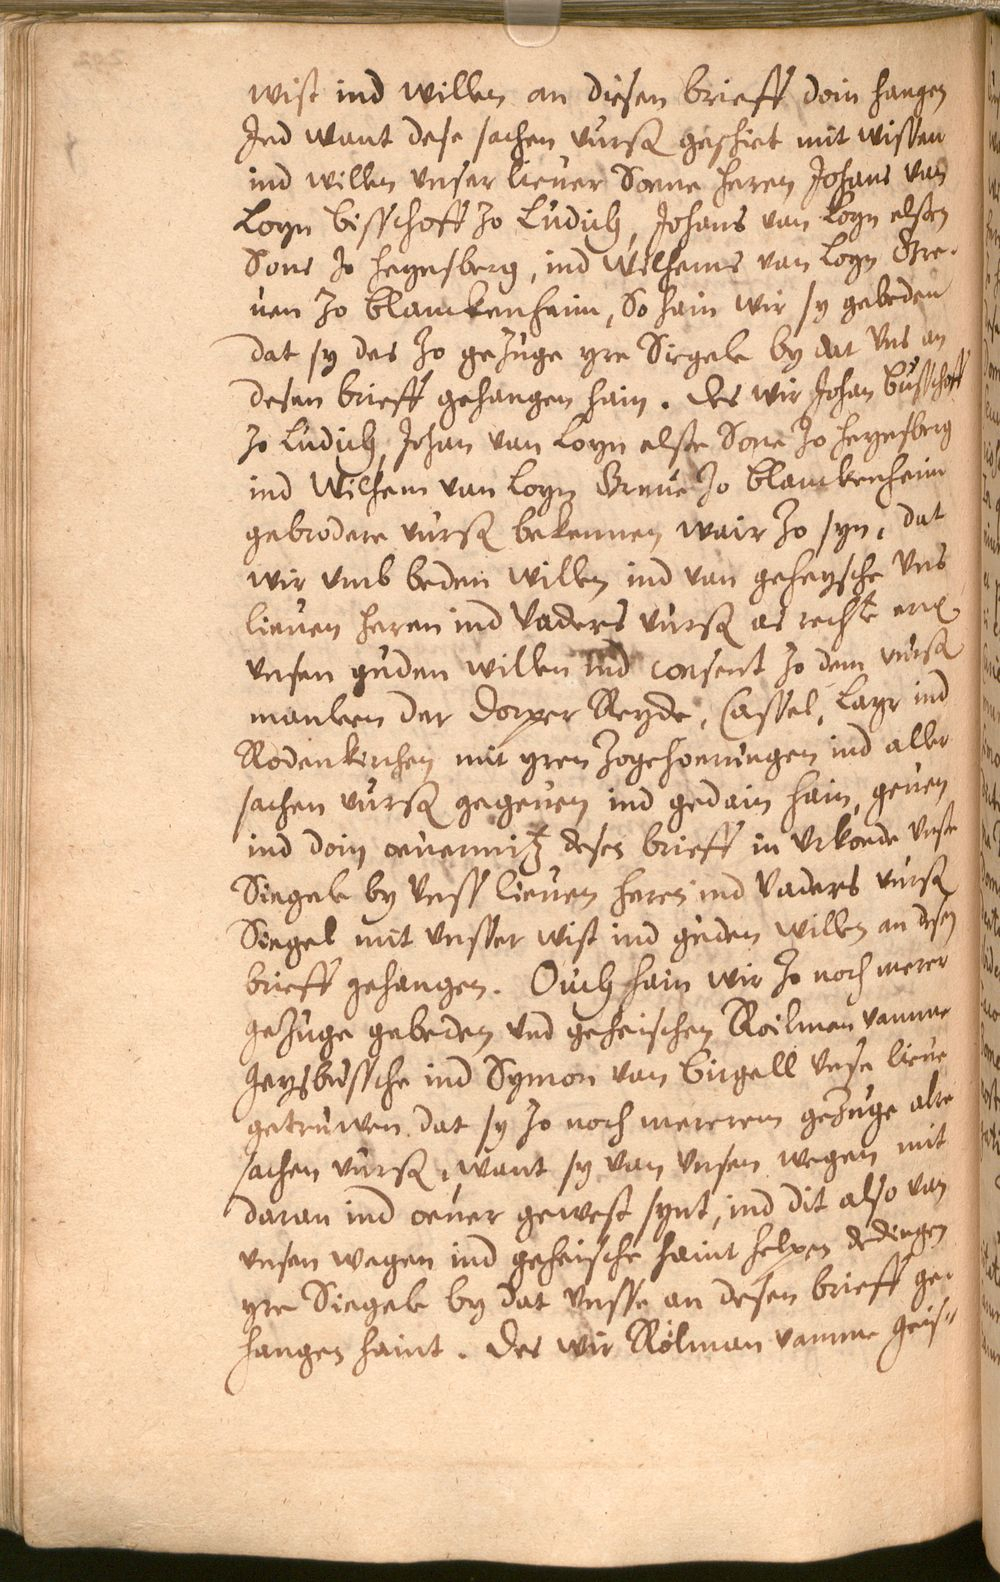 wist ind willen an diesen brieff doin hangen
Ind want dese sachen vursß geschiet mit wissen
ind willen vnser lieuer Soene heren Johans van
Loyn bisschoff zo Ludich, Johans van Loyn elsten
Sons zo heynsberg, ind Wilhems van Loyn Gre-
uen zo blanckenheim, So hain wir sy gebeden
dat sy des zo gezuge yre Siegele by dat Vns an
desen brieff gehangen hain. Des wir Johan busschoff
zo Ludich, Johan van Loyn elste Sone zo heynsberg
ind Wilhem van Loyn Greue zo blanckenheim
gebrodere vursß bekennen wair zo syn, dat
wir vmb beden willen ind van geheysche Vns
lieuen heren ind Vaders vursß as rechte
vnsen guden willen ind consent zo dem vursß
manleen der Dorper Reyde, Cassel, Layr ind
Rodenkirchen mit yren zogehoerungen ind aller
sachen vursß gegeuen ind gedain hain, geuen
ind doin ouermitz deses brieff in Vrkonde Vnse
Siegele by Vnss lieuen heren ind Vaders vursß
Siegel mit vnsser wist ind guden willen an desen
brieff gehangen. Ouch hain wir zo noch merer
gezuge gebeden vnd geheischen Roilman vamme
Geysbussche ind Symon van Birgell vnse lieue
getruwen dat sy zo noch mererem gezuge alre
sachen vursß, want sy van vnsen wegen mit
daran ind oeuer gewest synt, ind dit also van
vnsen wegen ind geheische haint helpen dedingen
yre Siegele by dat Vnsse an desen brieff ge-
hangen haint. Des wir Rolman vamme Geis-